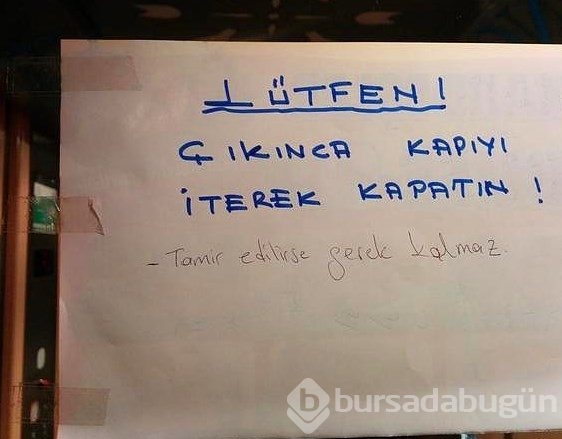 LÜTFEN!
ÇIKINCA KAPIYI
İTEREK KAPATIN !
- Tamir edilirse gerek kalmaz.
b bursadabugün